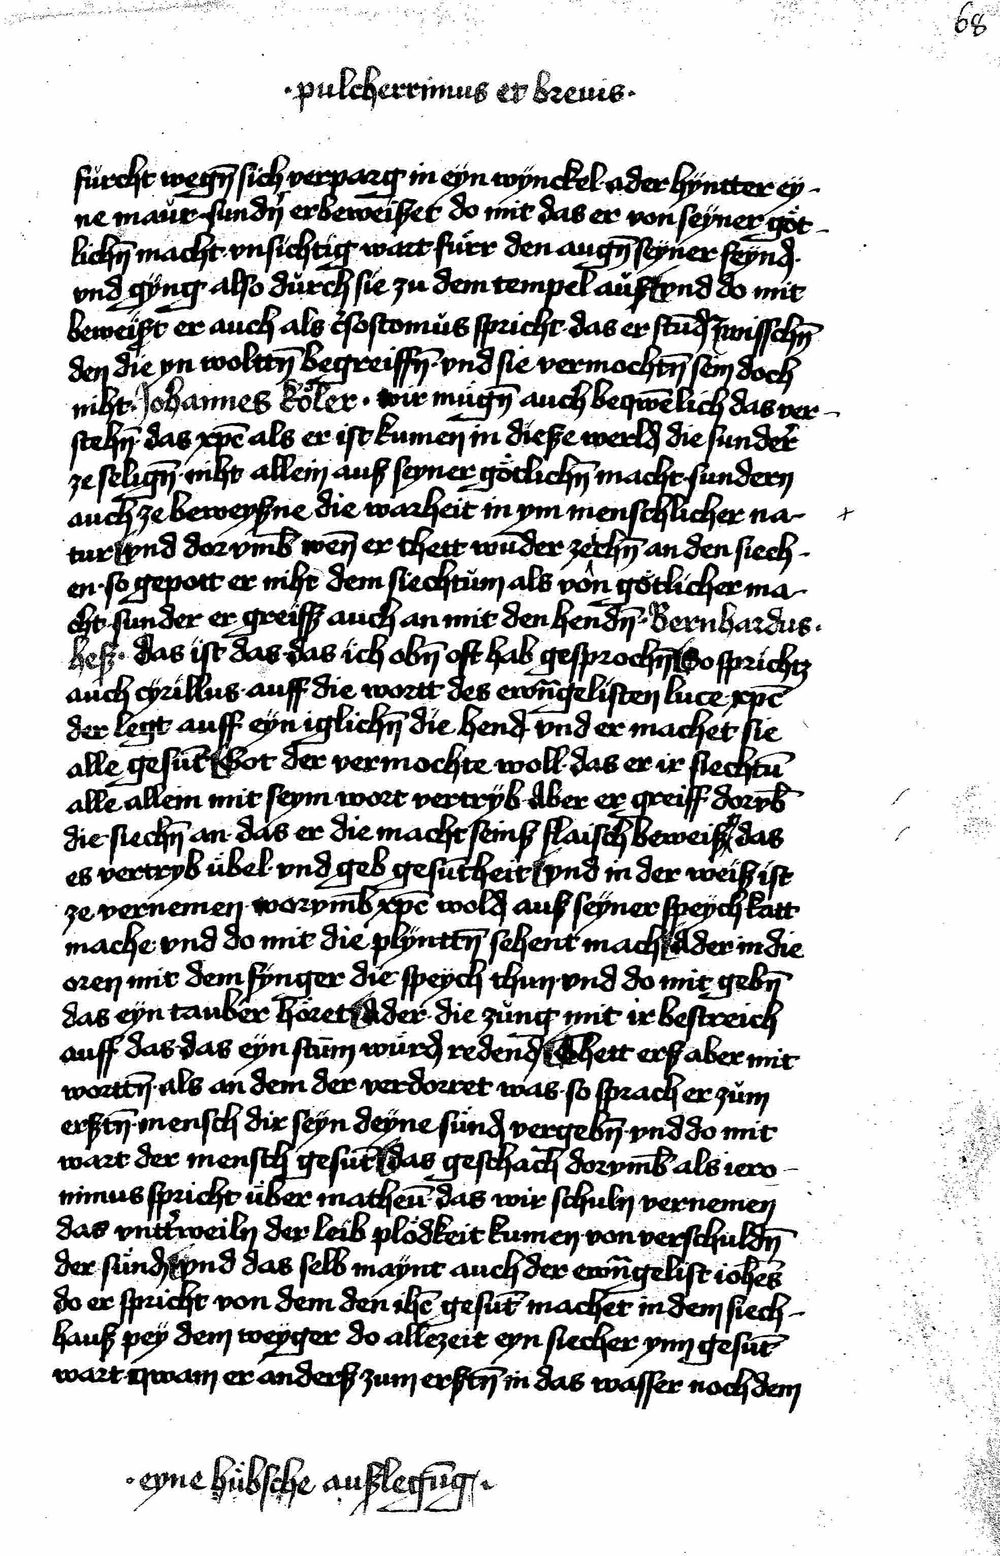 68
·pulcherrimus et breuis·
fürcht wegn̄ sich verparg in eyn wynckel ader hyntter ey-
ne maür sundn̄ erbeweißet do mit das er von seyner göt-
lichn̄ macht vnsichtig wart fürr den augn̄ seyner feynd
vnd gyng also dürch sie zu dem tempel auß vnd do mit
beweißt er auch als c̄sostomus spricht das er stūd zwisschn̄
den die yn wolttn̄ begreiffn̄ vnd sie vermochtn̄ sein doch
niht · Johannes köler · wir mügn̄ auch beqwēlich das ver-
stehn̄ das xp̄c als er ist kumen in dieße werld die sunder
ze selign̄ niht allein auß seyner götlichn̄ macht sundern
auch ze beweyßne die warheit in ym menschlicher na-
tur vnd dorymb̄ wen̄ er thett wunder zeichn̄ an den siech-
en so gepott er niht dem siechtüm als von götlicher ma-
cht sunder er greiff auch an mit den hendn̄ · Bernhardus ·
heß · das ist das das ich obn̄ oft hab gesprochn̄ So sprichtz
auch cyrillus auff die wortt des ewn̄gelisten luce xp̄c
der legt auff eyn iglichn̄ die hend vnd er machet sie
alle gesūt Got der vermochte woll das er ir siechtū
alle allein mit seym wort vertryb Aber er greiff dorvb̄
die siechn̄ an das er die macht seinß flaisch beweiß das
es vertryb übel vnd geb gesūtheit vnd in der weiß ist
ze vernemen worvmb̄ xp̄c wold auß seyner speych katt
mache vnd do mit die plynttn̄ sehent mach Ader in die
oren mit dem fynger die speych thun vnd do mit gebn̄
das eyn tauber höret Ader die züng mit ir bestreich
auff das das eyn stūm würd redend Thett erß aber mit
worttn̄ als an dem der verdorret was so sprach er züm
erstn̄ mensch dir seyn deyne sünd vergebn̄ vnd do mit
wart der mensch gesūt das geschach dorvmb̄ als iero-
nimus spricht über matheū das wir schuln vernemen
das vntt̄weiln der leib plödkeit kumen von verschuldn̄
der sünd vnd das selb maynt auch der ewn̄gelist ioh̄es
do er spricht von dem den ih̄c gesūt machet in dem siech-
hauß pey dem weyger do allezeit eyn siecher ynn gesūt
wart qwam er anderß zum erstn̄ in das wasser noch dem
·eyne hübsche außlegūg·